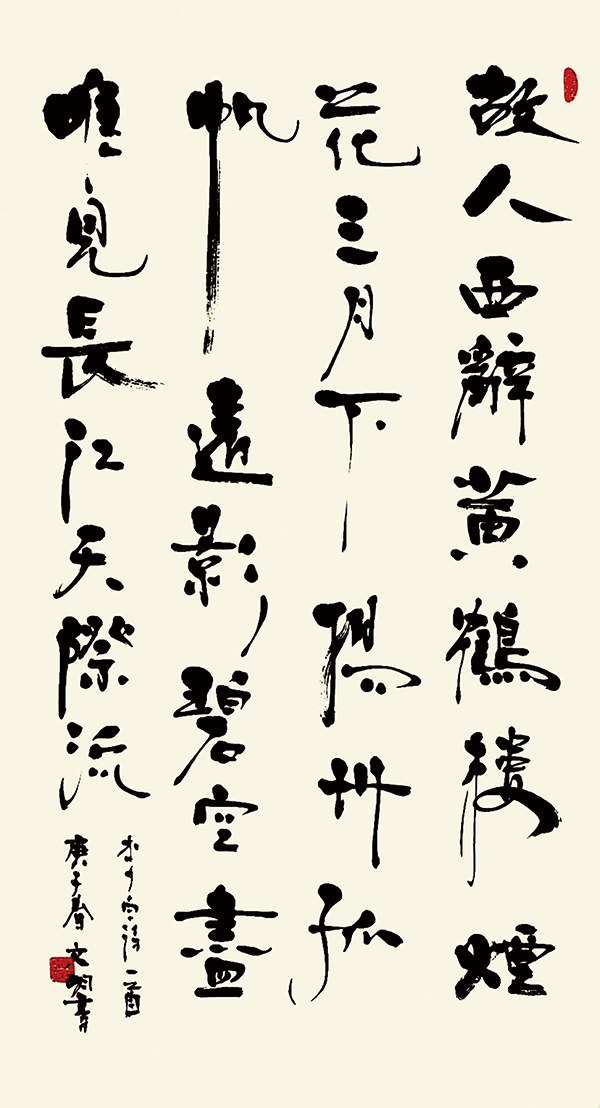 故人西辭黄鶴樓煙
花三月下揚州孤
帆遠影碧空盡
唯見長江天際流
李白詩一首
庚子春文明書